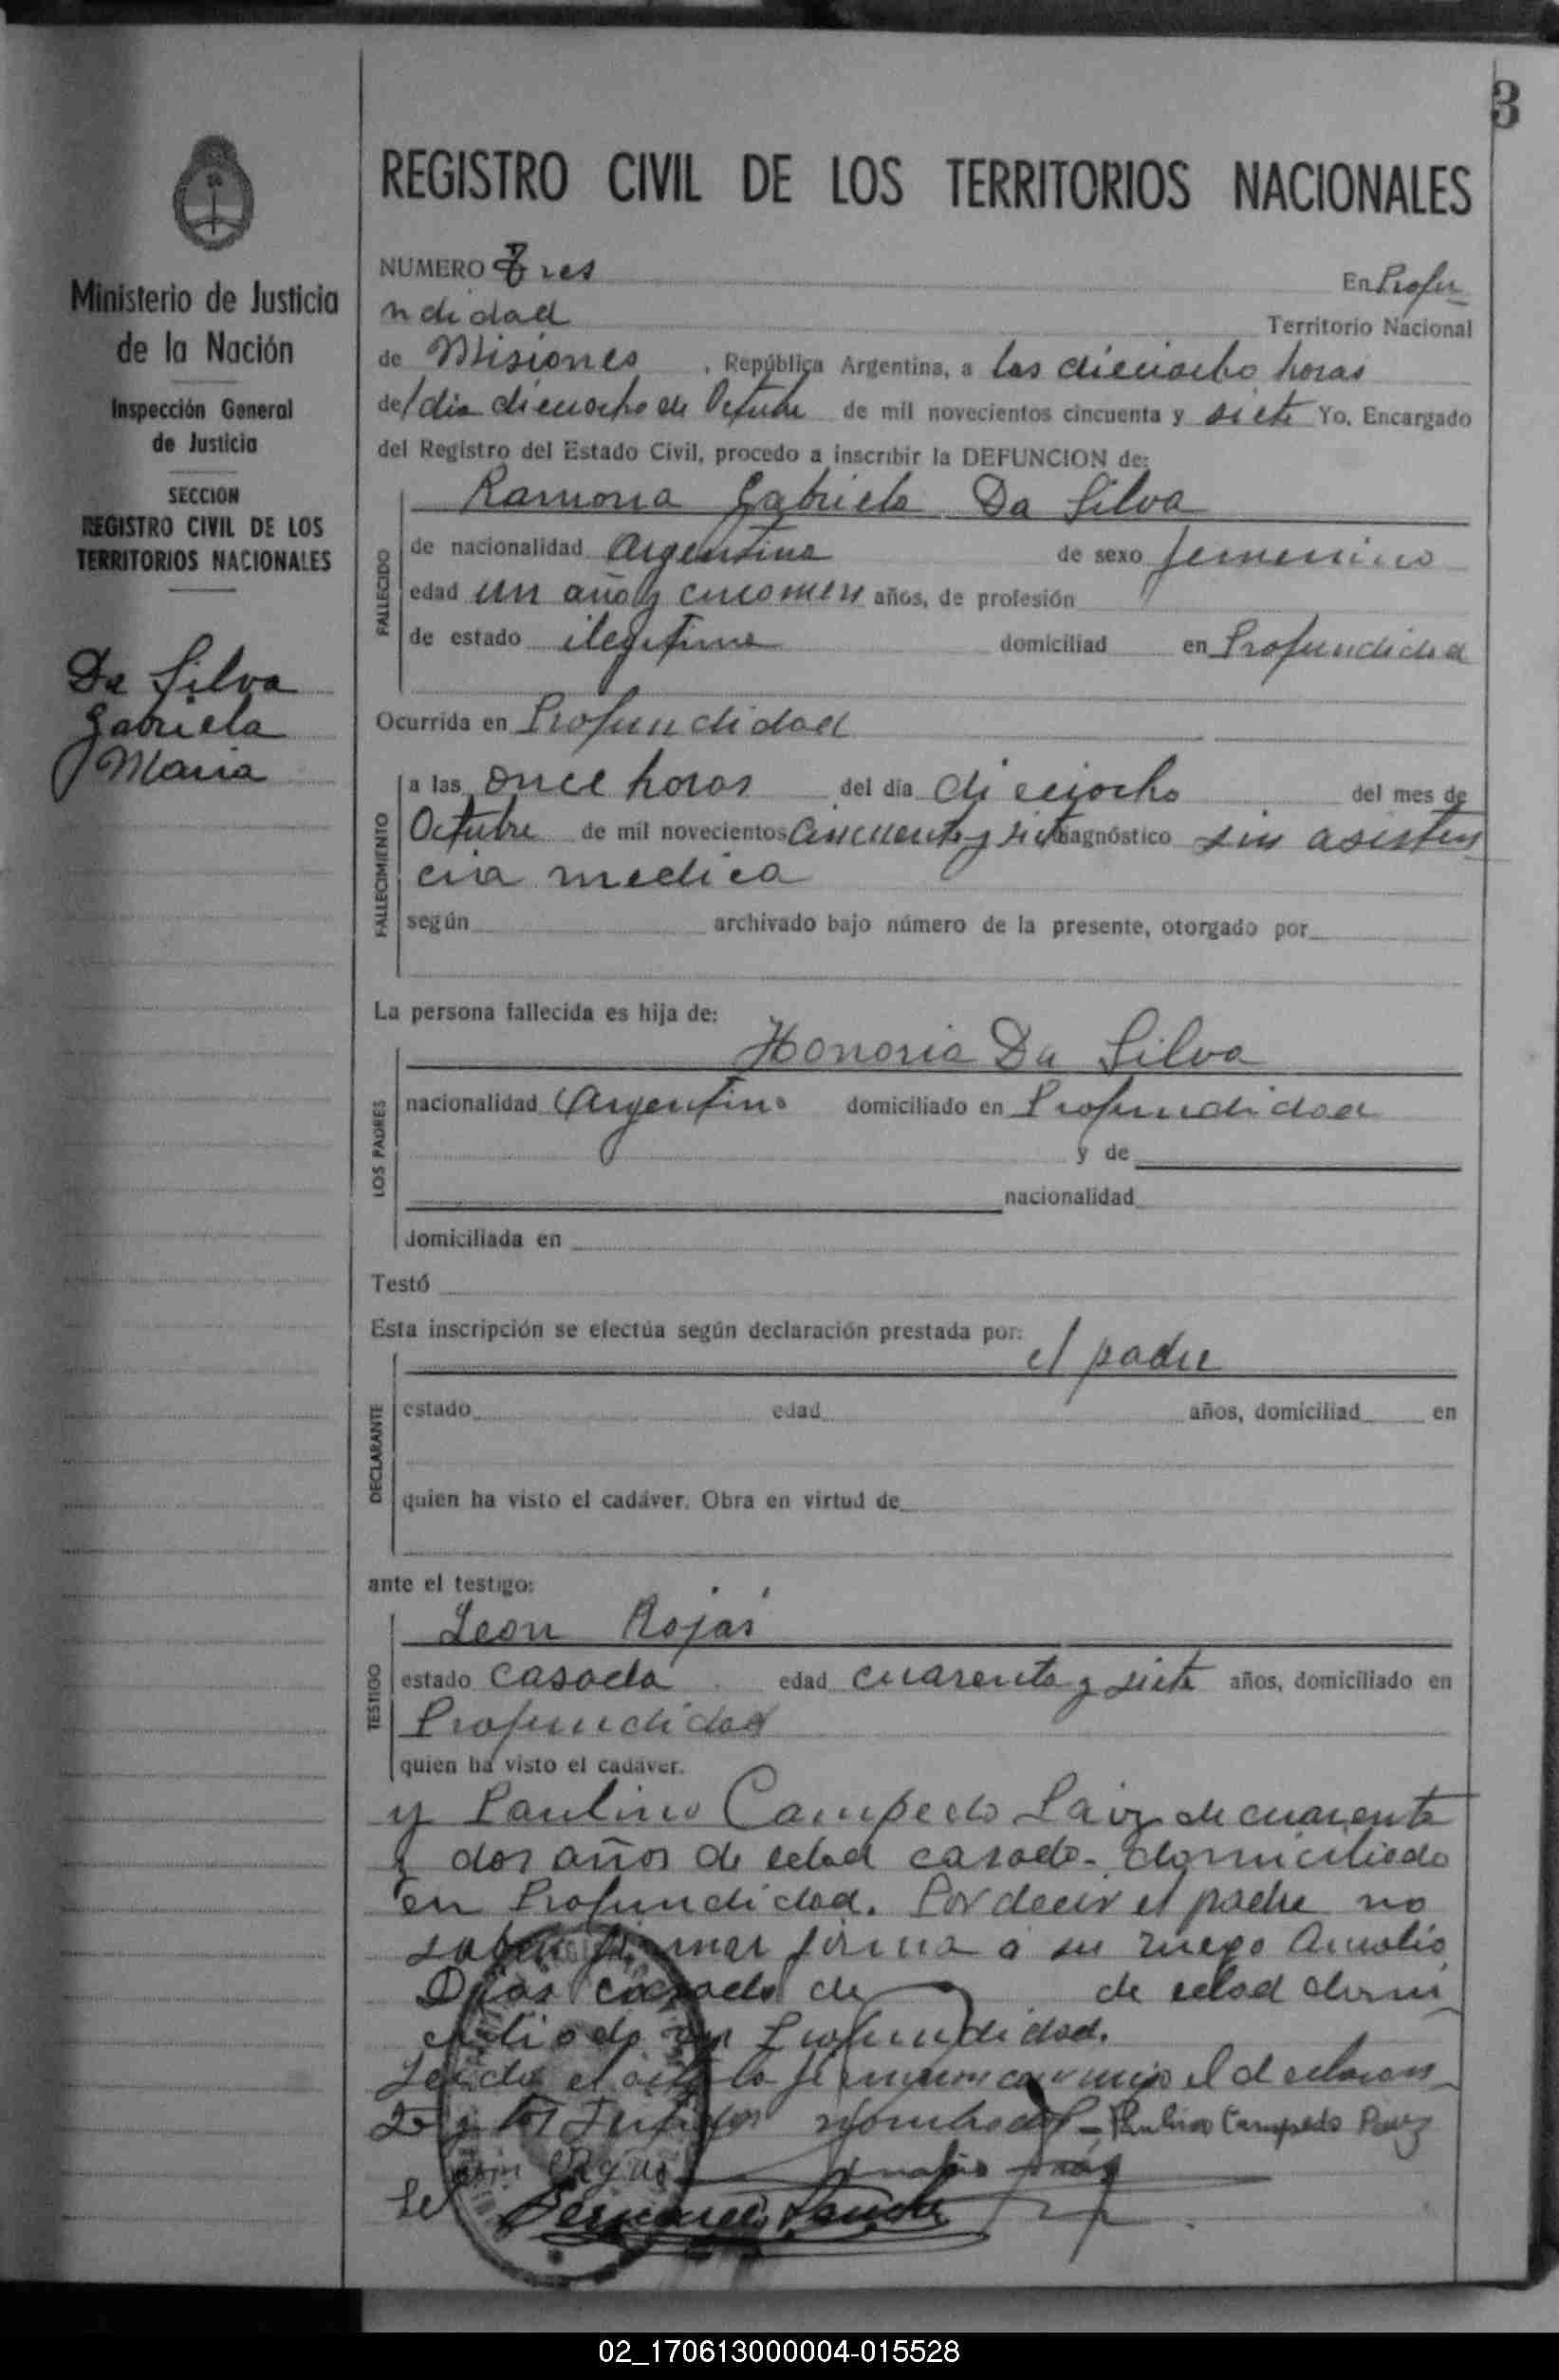 3
REGISTRO CIVIL DE LOS TERRITORIOS NACIONALES
Ministerio de Justicia
de la Nación
Inspección General
de Justicia
SECCION
REGISTRO CIVIL DE LOS
TERRITORIOS NACIONALES
Da Silva
Gabriela
Maria
NUMERO Tres En Profu
ndidad Territorio Nacional
de Misiones , República Argentina, a las dieciocho horas
del dia dieciocho de Octubre de mil novecientos cincuenta y siete Yo, Encargado
del Registro del Estado Civil, procedo a inscribir la DEFUNCION de:
Ramona Gabriela Da Silva
FALLECIDO
de nacionalidad Argentina de sexo femenino
edad un año y años, de profesión
de estado ilegitima domiciliad en Profundidad
Ocurrida en Profundidad
FALLECIMIENTO
a las once horas del día dieciocho del mes de
Octubre de mil novecientos cincuenta y siete diagnóstico sin asisten
cia medica
según archivado bajo número de la presente, otorgado por
La persona fallecida es hija de:
LOS PADRES
Honorio Da Silva
nacionalidad Argentino domiciliado en Profundidad
y de
nacionalidad
domiciliada en
Testó
Esta inscripción se efectúa según declaración prestada por:
el padre
DECLARANTE
estado edad años, domiciliad en
quien ha visto el cadáver. Obra en virtud de
ante el testigo:
TESTIGO
Leon Rojas
estado casado edad cuarenta y siete años, domiciliado en
Profundidad
quien ha visto el cadáver.
y Paulino Campedo de cuarenta
y dos años de edad casado - domiciliado
en Profundidad. Por decir el padre no
saber firmar firma a su ruego
casado de de edad domi
ciliado en Profundidad.
Leida el acta la firman conmigo el declaran
te y los Testigos nombrados - Paulino Campedo
02_170613000004-015528